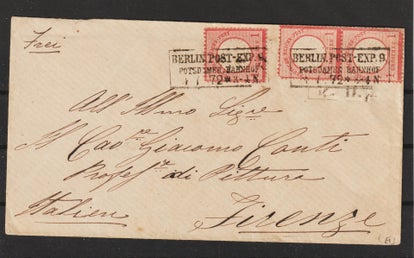 Frei
BERLIN, POST-EXP. 9.
POTSDAMER BAHNHOF
72
BERLIN, POST-EXP. 9.
POTSDAMER BAHNHOF
72
1
1
1
All' Illmo Sigre
Il Cavre Giacomo Conti
Profesre di Pittura
Italien
Firenze